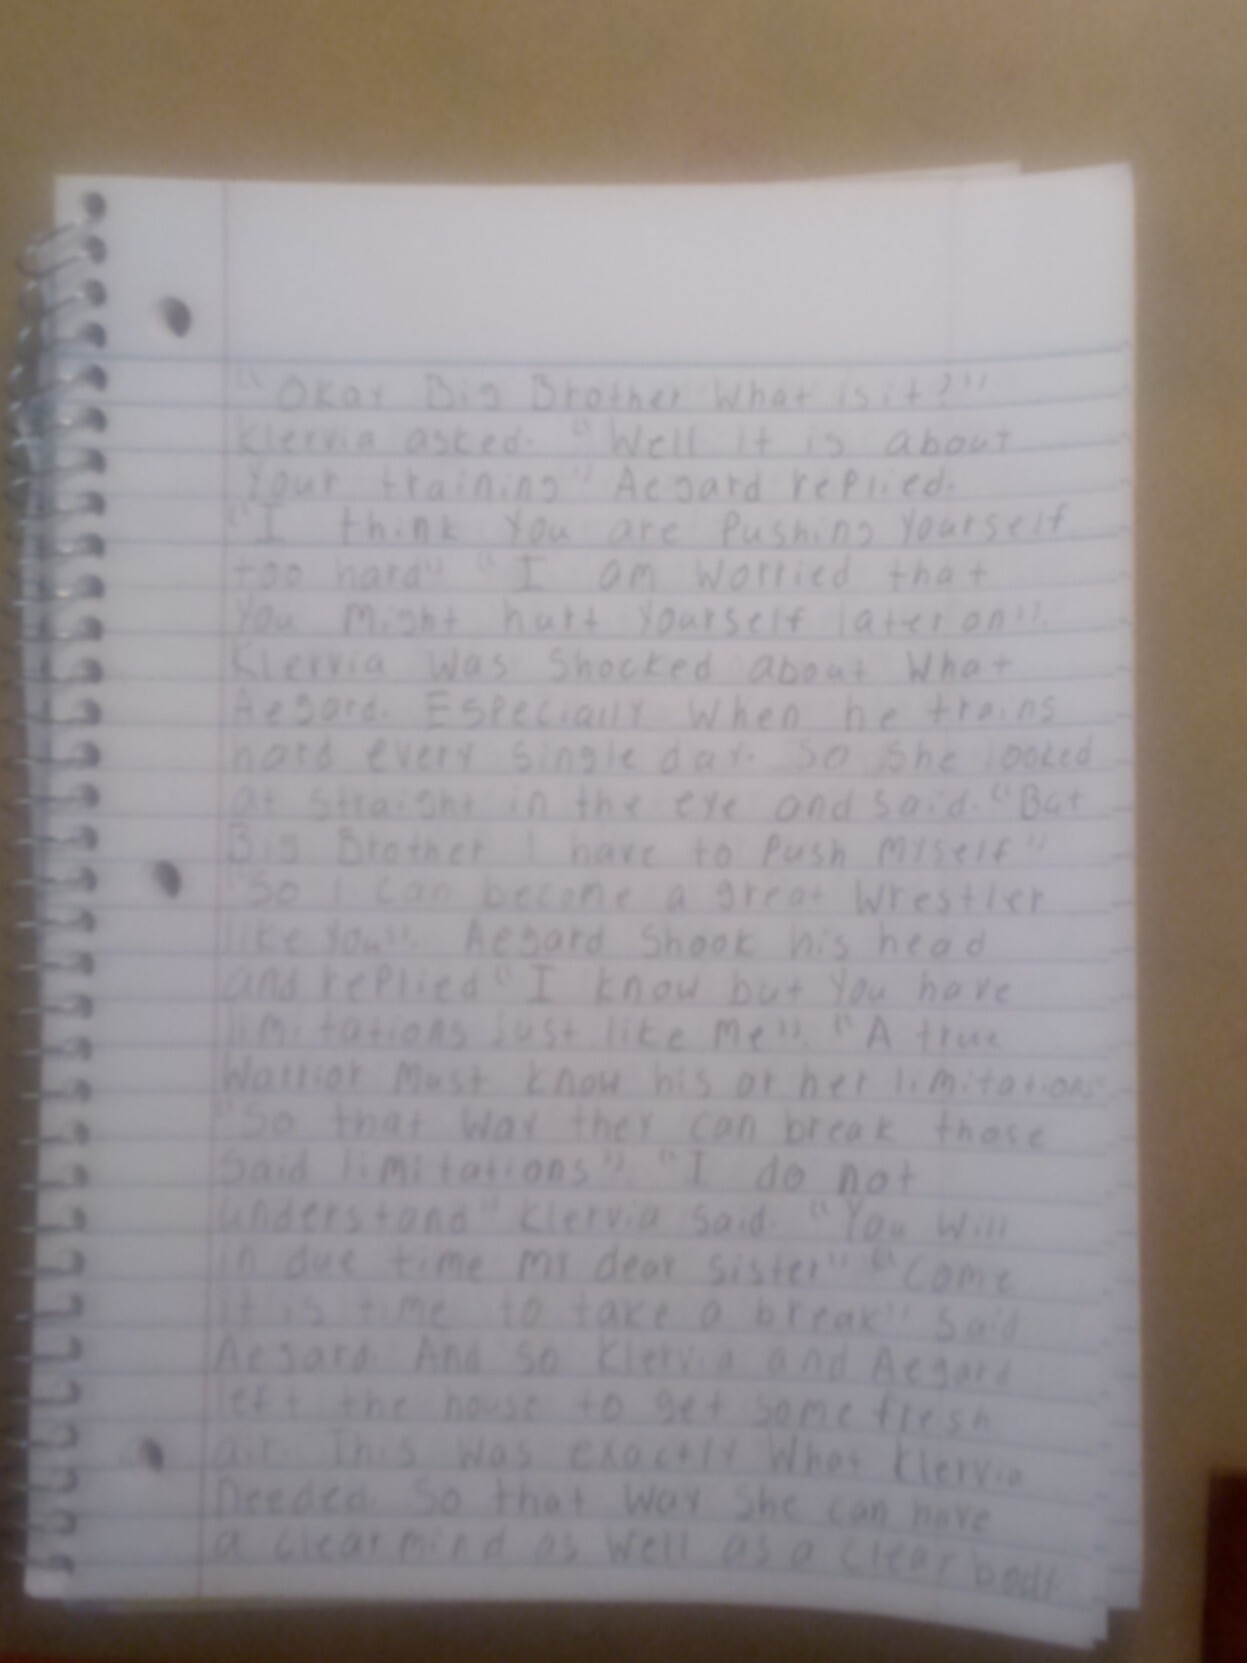 "Okay Big Brother What is it?"
Klervia asked. "Well it is about
Your training" Aegard replied.
"I think You are Pushing Yourself
too hard" "I am Worried that
You Might hurt Yourself later on".
Klervia Was Shocked about What
Aegard. Especially When he trains
hard every single day. So She looked
at Straight in the eye and Said. "But
Big Brother I have to Push Myself"
"So I Can become a great Wrestler
like You". Aegard Shook his head
and replied "I know but You have
limitations just like Me". "A true
Warrior Must know his or her limitations
"So that Way they can break those
Said limitations". "I do not
understand" Klervia Said. "You Will
in due time My dear sister" "Come
it is time to take a break" Said
Aegard. And So Klervia and Aegard
left the house to get Some fresh
air. This Was exactly What Klervia
Needed. So that Way She can have
a clear mind as Well as a Clear body